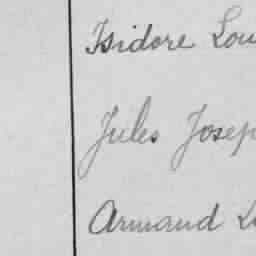 Isidore Lou
Jules Josep
Armand L